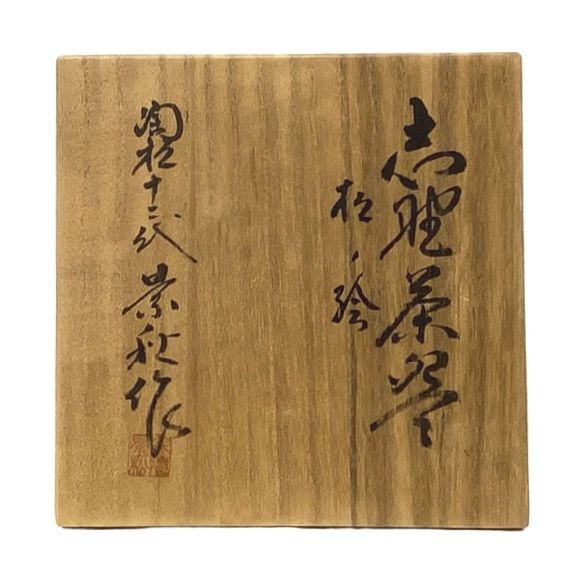 志野茶碗
松ノ絵
陶松十二代
崇秋作